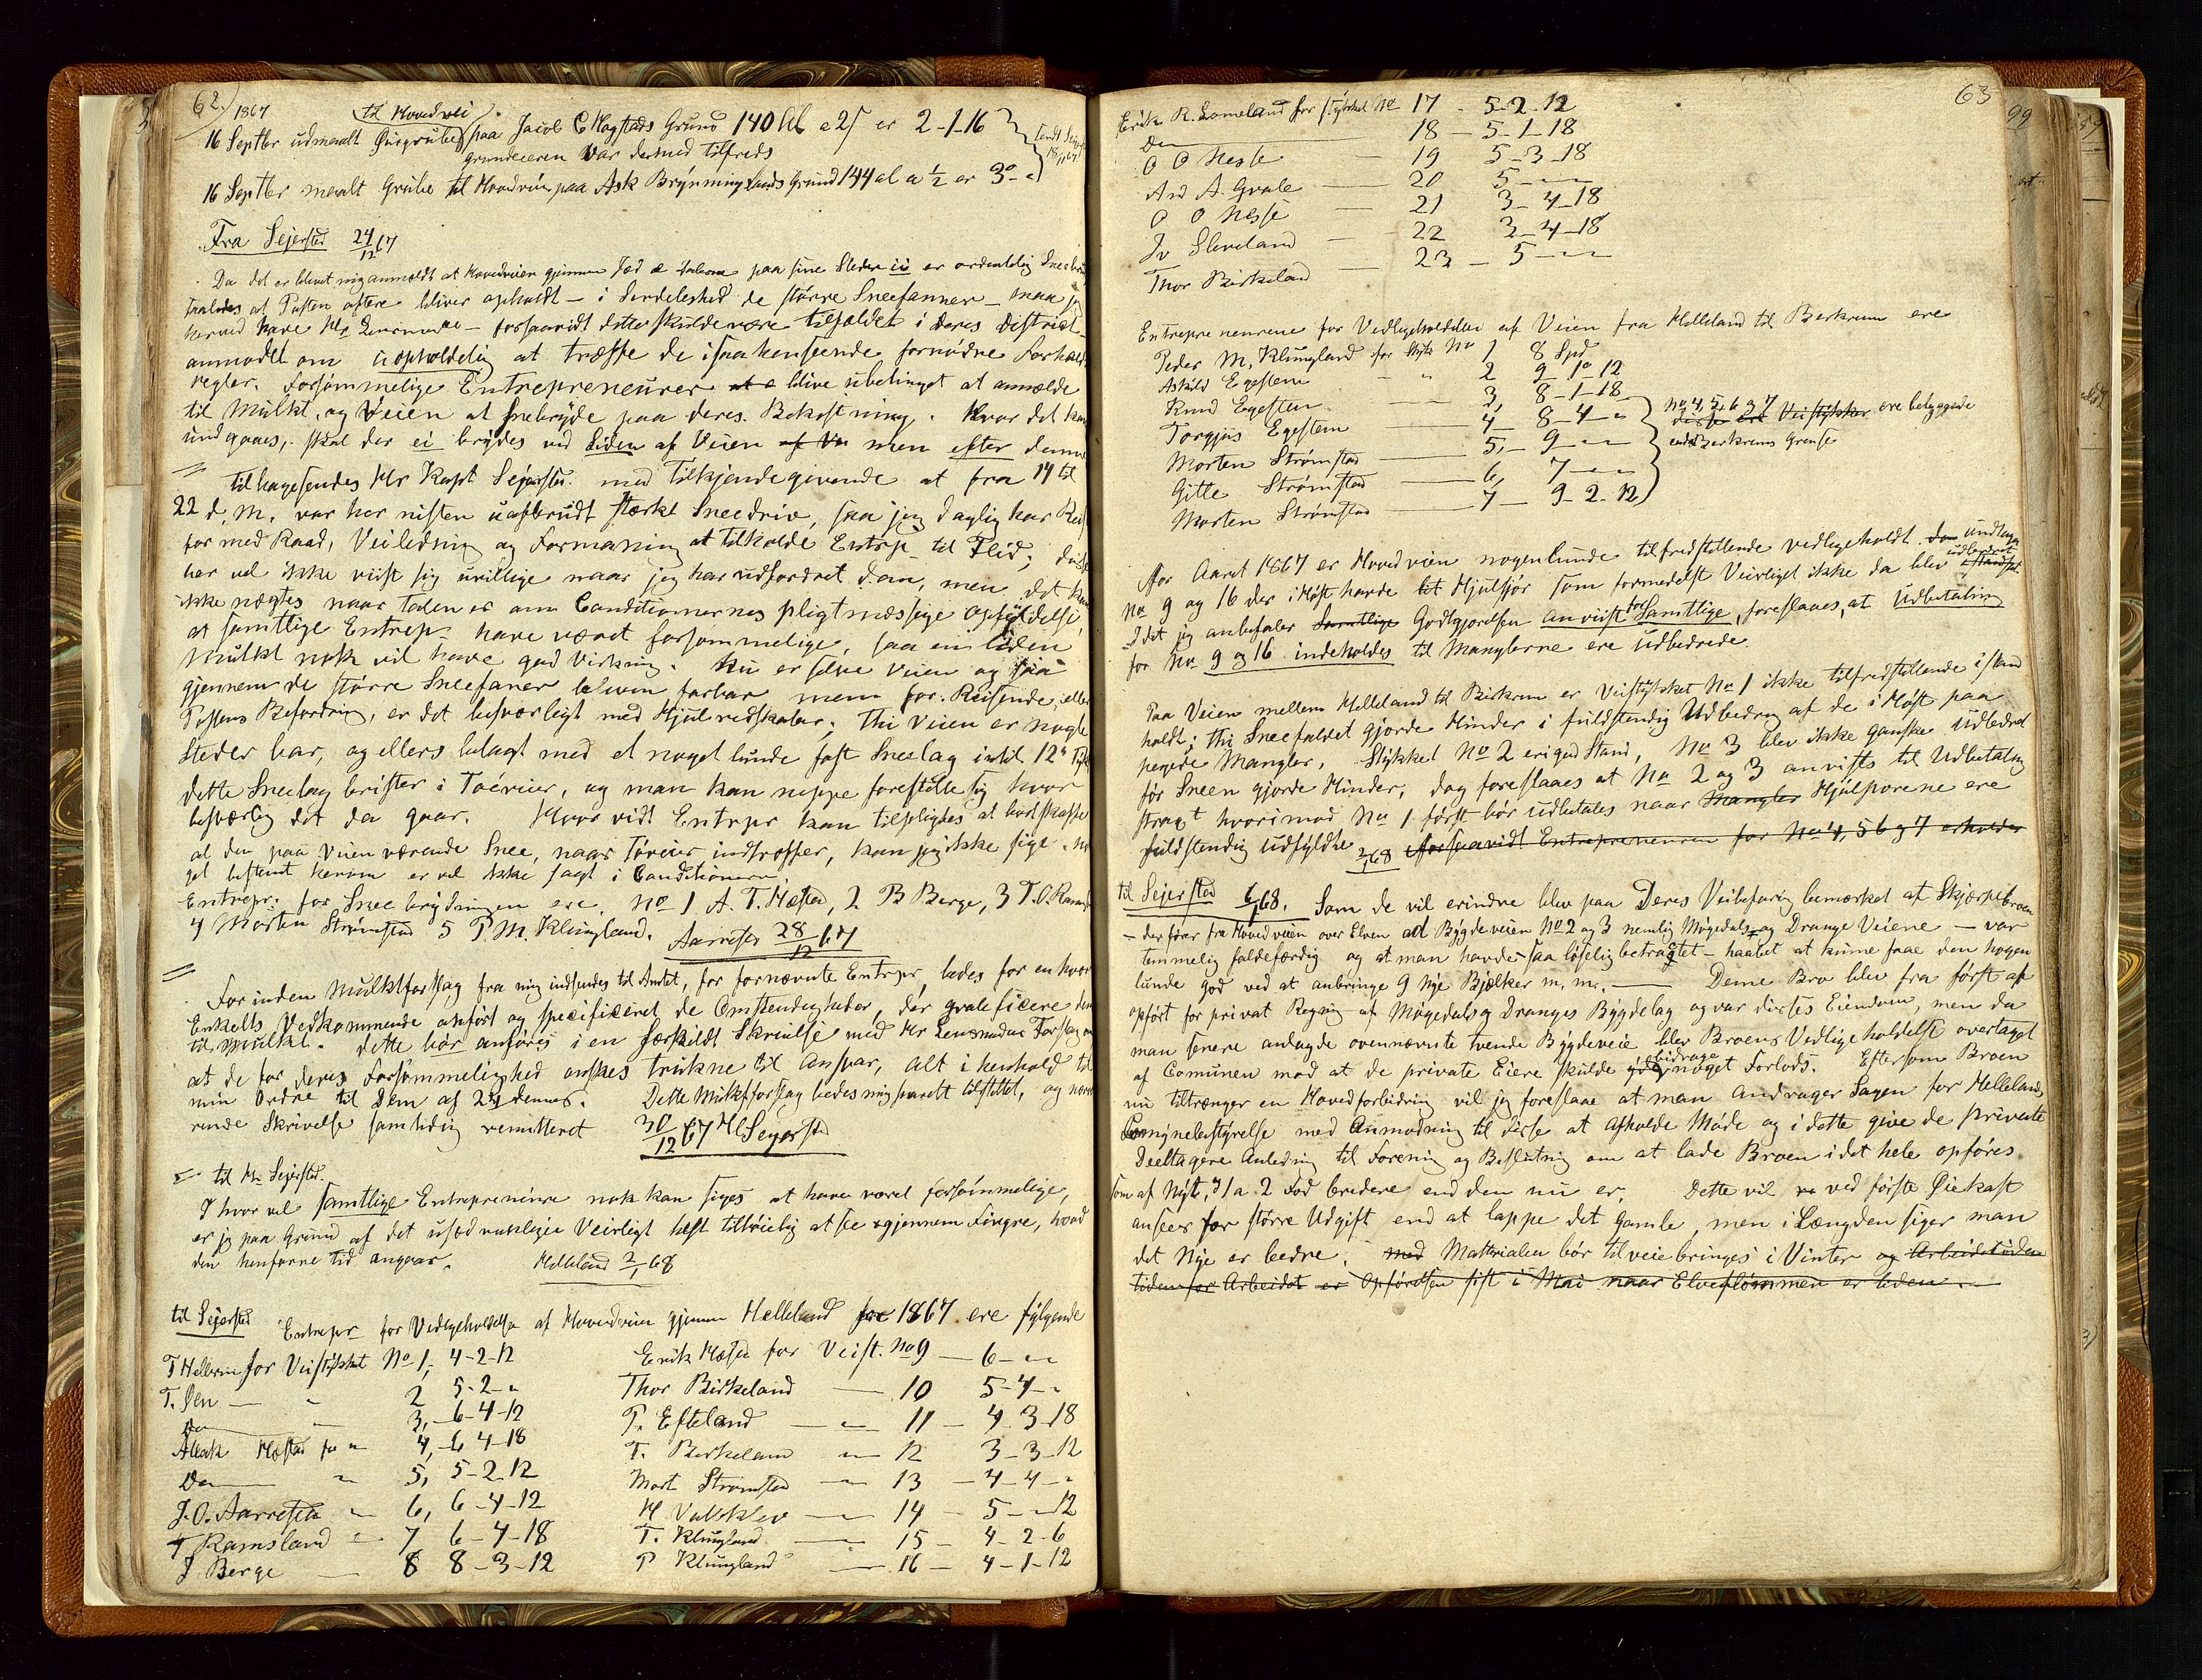 62.) 1867 til Hovedvei
16 Septbr udmaalt Gruisgrube paa Jacob C Hogstads Grund 140 Al a 2/ er 2-1-16
Grundeieren var dermed tilfreds
16 Septbr maalt Grube til Hovedvein paa Ask Brynnings Lands Grund 144 al a ½ er 3
Fra Sejersted 24/12 67
Da det er blevet mig anmeldt at Hovedveien gjennem paa sine Steder ei er ordentlig Sneebrøi
at Posten oftere bliver opholdt – i Særdeleshed de større Sneefanner – maa jeg
herved have Hr Lensmanden – forsaavidt dette skulde være tilfældet i Deres District
anmodet om uopholdelig at træffe de i saa henseende fornødne Forhold
regler. Forsømmelige Entrepreneurer blive ubetinget at anmelde
til Mulkt, og Veien at Snebryde paa deres Bekostning. Hvor det kan
undgaaes, skal der ei brydes ved Siden af Veien af Vei men efter denne
Tilbagesendes Hr Kapt Sejersted med Tilkjendegivende at fra 14 til
22 d. M. var her næsten uafbrudt stærkt Sneedriv, saa jeg daglig har
for med Raad, Veiledning og Formaning at tilholde Entrp. til Flid; disse
har vel ikke viist sig uvillige naar jeg har udfordret dem, men det kan
ikke nægtes naar Talen er om Conditionernes pligtmæssige Opfyldelse,
at samtlige Entrep. have været forsømmelige, saa en liden
Mulkt nok vil have god Virkning. Nu er selve Veien og saa
gjennem de større Sneefaner bleven farbar men for Reisende, eller
Postens Befordring, er det besværligt med Hjulredskaber; Thi Veien er nogle
Steder bar, og ellers belagt med et noget lunde fast Sneelag indtil 12"
dette Sneelag brister i Tøeveir, og man kan neppe forestille sig hvor
besværlig det da gaar. Hvor vidt Entrpr kan tilpligtes at bortskaffe
al den paa Veien værende Snee, naar Tøveir indtræffer, kan jeg ikke sige, no
get bestemt herom er vel ikke sagt i Conditionerne.
Entrepr. for Sneebrydningen ere, No 1 A. T. Hæstad, 2 B Berge, 3 T. O. Ramsl
4 Morten Strømstad 5 P. M. Klungland. Aarrestad 28/12 67
Forinden Mulktforslag fra mig indsendes til Amtet, for fornævnte Entrpr, bedes for en hver
Enkelts Vedkommende anført og specificeret de Omstændigheder, der qvalificere dem
til Mulkt. Dette bør anføres i en særskildt Skrivelse med Hr Lensmandens Forslag om
at de for deres Forsømmelighed ønskes trukne til Ansvar, alt i henhold til
min Ordre til Dem af 24 dennes. Dette Mulktforslag bedes mig snarest tilstillet, og nærv
rende Skrivelse samtidig remitteret 30/12 67 H Sejersted
til Hr Sejersted.
I hvor vel samtlige Entrepreneurer nok kan siges at have været forsømmelige,
er jeg paa Grund af det usædvanlige Veirligt helst tilbøielig at see gjennem Fingre, hvad
den henfarne Tid angaar. Helleland 2/1 68
til Sejersted Entrepr for Vedligeholdelse af Hovedveien gjennem Helleland for 1867 ere følgende
T Helleren for Veistykket No 1, 4-2-12 Erik Hæstad for Veist. No 9 – 6- "
T. Øen – " 2 5-2-" Thor Birkeland – 10 5-4-"
Do – 3, 6-4-12 P. Efteland – " – 11 – 4-3-18
Aslak Hæstad for " 4, 6 4-18 T. Birkeland – 12 3-3-12
Do – " 5, 5-2-12 Mort Strømstad – 13 – 4-4-"
J. O. Aarrestad " 6, 6-4-12 H Vasklev – 14 – 5-"-12
T Ramsland " 7 6-4-18 T. Klungland – 15 – 4-2-6
J. Berge – 8 8-3-12 P Klungland – 16 – 4-1-12
63
Erik R. Lomeland for Stykket No 17 – 5-2-12
Do 18 – 5-1-18
O O Nesse – 19 5-3-18
And A. Gvale – 20 5-"-"
O O Nesse – 21 3-4-18
Sleveland – 22 2-4-18
Thor Birkeland – 23 – 5-"-"
Entrepreneurene for Vedligeholdelse af Veien fra Helleland til Bierkrem ere
Peder M. Klungland for Stykke No 1 8 Spd
Askild Egestem – " 2 9-1-12
Knud Egestem – 3, 8-1-18
Torgjus Egestem – 4 8-4-"
Morten Strømstad – 5, – 9-"-"
Gitle Strømstad – 6, 7-"-"
Morten Strømstad – 7 – 9-2-12
No 4, 5, 6 og 7
disse ere Veistykker ere beliggende
inden Berkrems Grænse
For Aaret 1867 er Hovedveien nogenlunde tilfredstillende vedligeholdt undtagen
No 9 og 16 der i Høst havde lidt Hjulspor som formedelst Veirliget ikke da blev udbedret
Idet jeg anbefaler Samtlige Godtgjørelsen anviist for Samtlige, foreslaaes, at Udbetaling
for No 9 og 16 indeholdes til Manglerne ere udbedrede.
Paa Veien mellem Helleland til Birkrem er Veistykket No 1 ikke tilfredstillende istand
holdt; thi Sneefaldet gjorde Hinder i fuldstendig Udbedring af de i Høst paa
pegede Mangler. Stykket No 2 er i god Stand, No 3 blev ikke ganske udbedret
før Sneen gjorde Hinder, dog foreslaaes at No 2 og 3 anvises til Udbetaling
straxt hvorimod No 1 først bør udbetales naar Mangler Hjulsporene ere
fuldstendig udfyldte 2/1 68 forsaavidt Entrepreneuren for No 4, 5 6 og 7 erholder
til Sejersted 6/1 68. Som de vil erindre blev paa Deres Veibefaring bemærket at Skjerpebroen
– der fører fra Hovedveien over Elven ad Bygdeveien No 2 og 3 nemlig Møgedals- og Drange Veiene – var
temmelig faldefærdig og at man havde – saa løselig betragtet – haabet at kunne faae den nogen
lunde god ved at anbringe 9 nye Bjælker m. m. – Denne Bro blev fra først af
opført for privat Regning af Møgedals og Dranges Bygdelag og var disses Eiendom, men da
man senere anlagde ovennævnte tvende Bygdeveie blev Broens Vedligeholdelse overtaget
af Comunen mod at de private Eiere skulde bidrage noget Forlods. Eftersom Broen
nu tiltrænger en Hovedforbedring vil jeg foreslaae at man andrager Sagen for Hellelands
Formynebestyrelse med Anmodning til disse at afholde Møde og i dette give de private
Deeltagere Anledning til Forening og Beslutning om at lade Broen i det hele opføres
som af Nyt, 1 a 2 Fod bredere end den nu er. Dette vil ved første Øiekast
ansees for større Udgift end at lappe det gamle, men i Længden siger man
det Nye er bedre. med Matterialier bør tilveiebringes i Vinter og Arbeidstiden
tiden for Arbeidet er Opførelsen sist i Mai naar Elveflømmen er leden